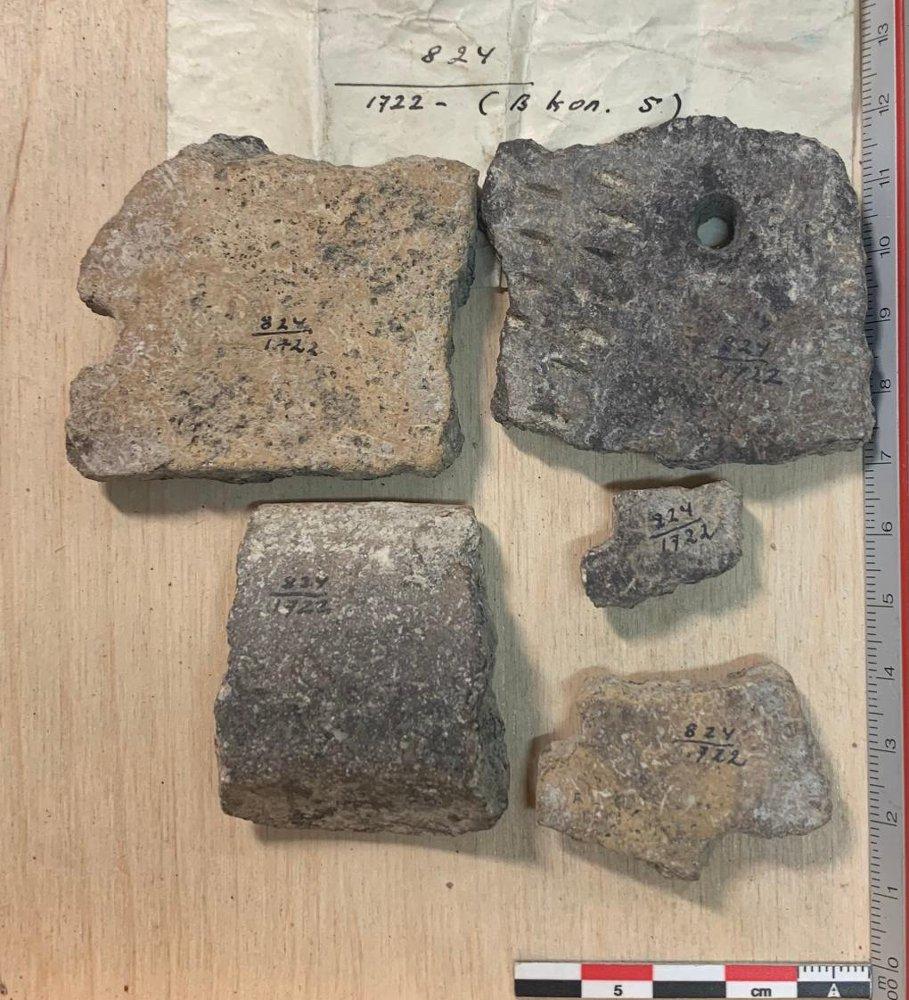 824
1722 - (В кол. 5)
824
1722
824
1722
824
1722
824
1722
824
1722
13
12
11
10
9
8
7
6
5
4
3
2
1
0
5 cm A